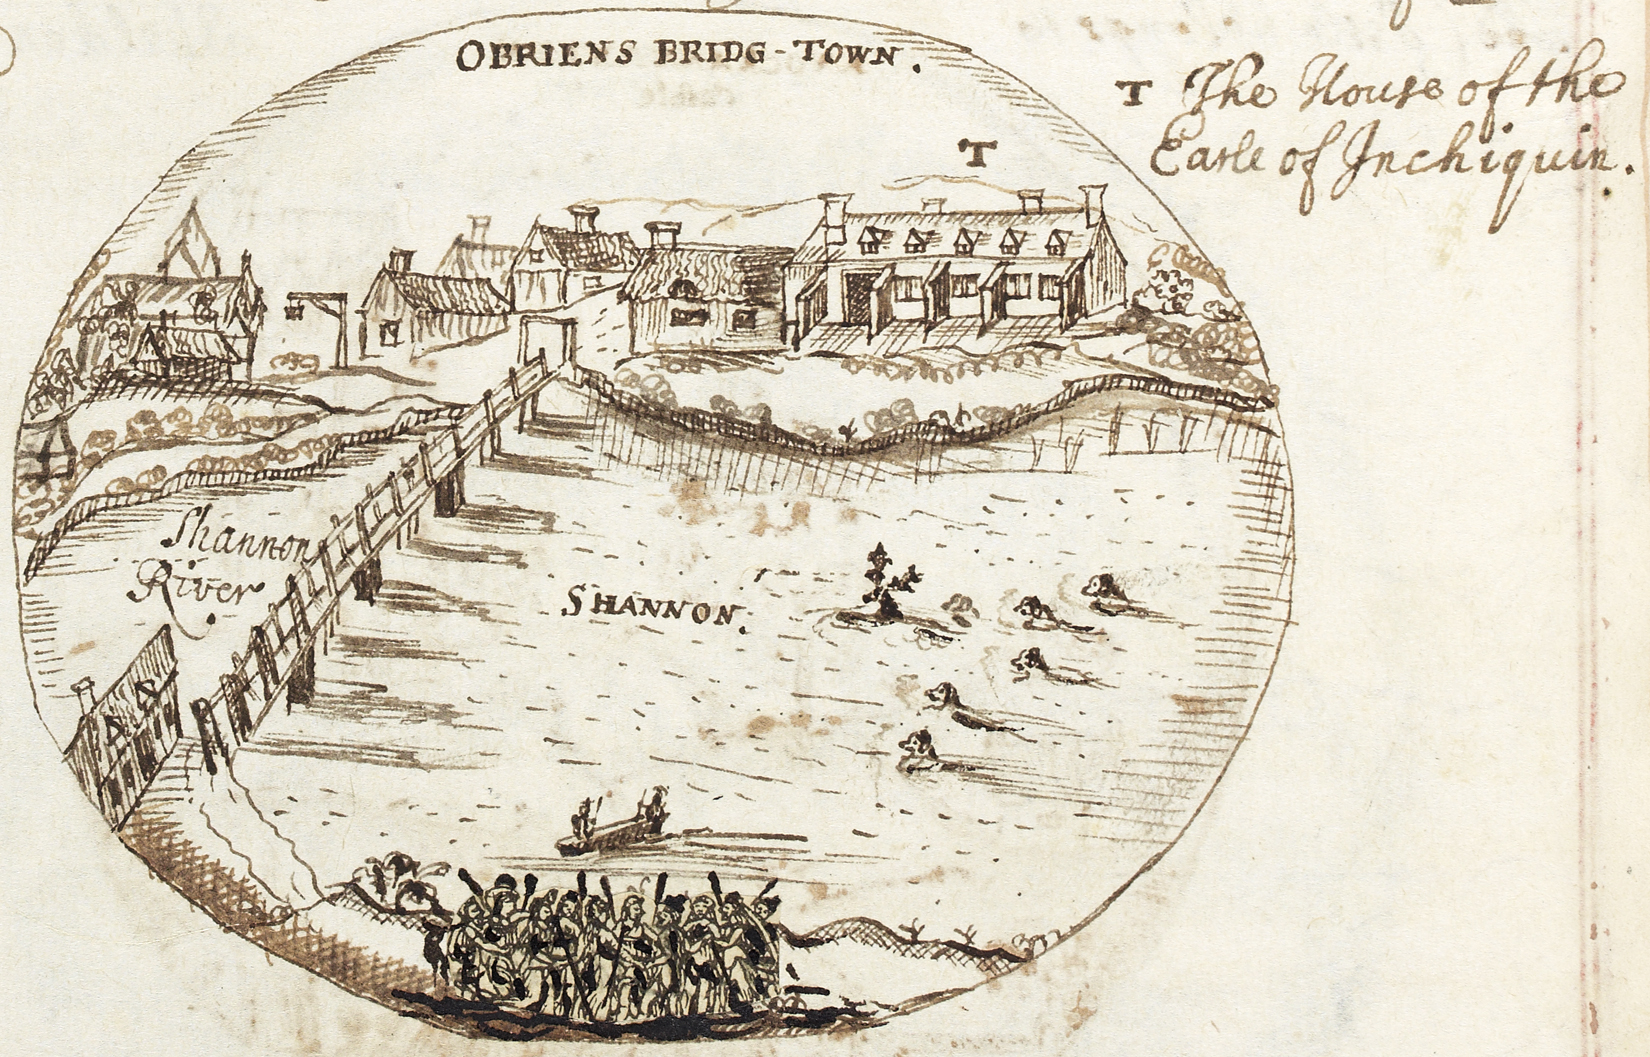 OBRIENS BRIDG-TOWN.
T The House of the
Earle of Inchiquin.
T
Shannon
River
SHANNON.